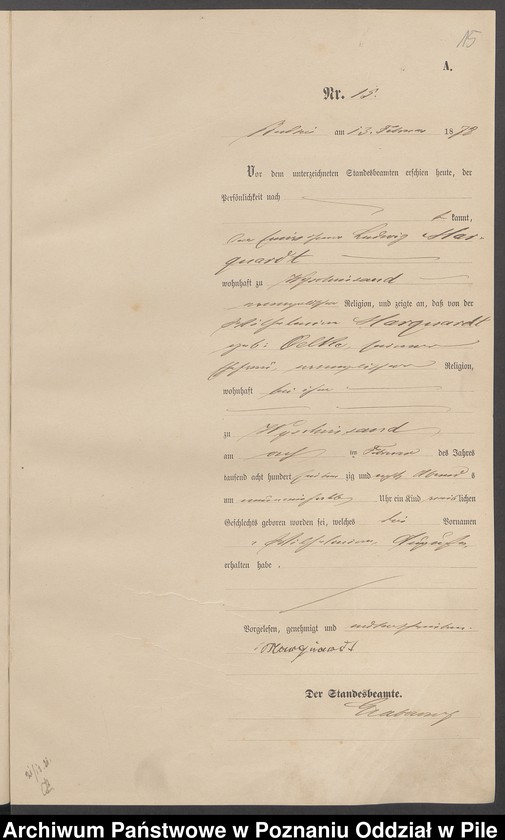 15
A.
Nr. 15.
am 13. Februar 1878
Vor dem unterzeichneten Standesbeamten erschien heute, der
Persönlichkeit nach
be kannt,
der Ludwig Mar-
quardt
wohnhaft zu
evangelischer Religion, und zeigte an, daß von der
Wilhelmine Marquardt
geb: seiner
Ehefrau, evangelischer Religion,
wohnhaft bei ihm
zu
am im Februar des Jahres
tausend acht hundert sieben zig und acht Abends
um Uhr ein Kind weiblichen
Geschlechts geboren worden sei, welches die Vornamen
Wilhelmine Auguste
erhalten habe.
Vorgelesen, genehmigt und unterschrieben.
Marquardt
Der Standesbeamte.
Archiwum Państwowe w Poznaniu Oddział w Pile